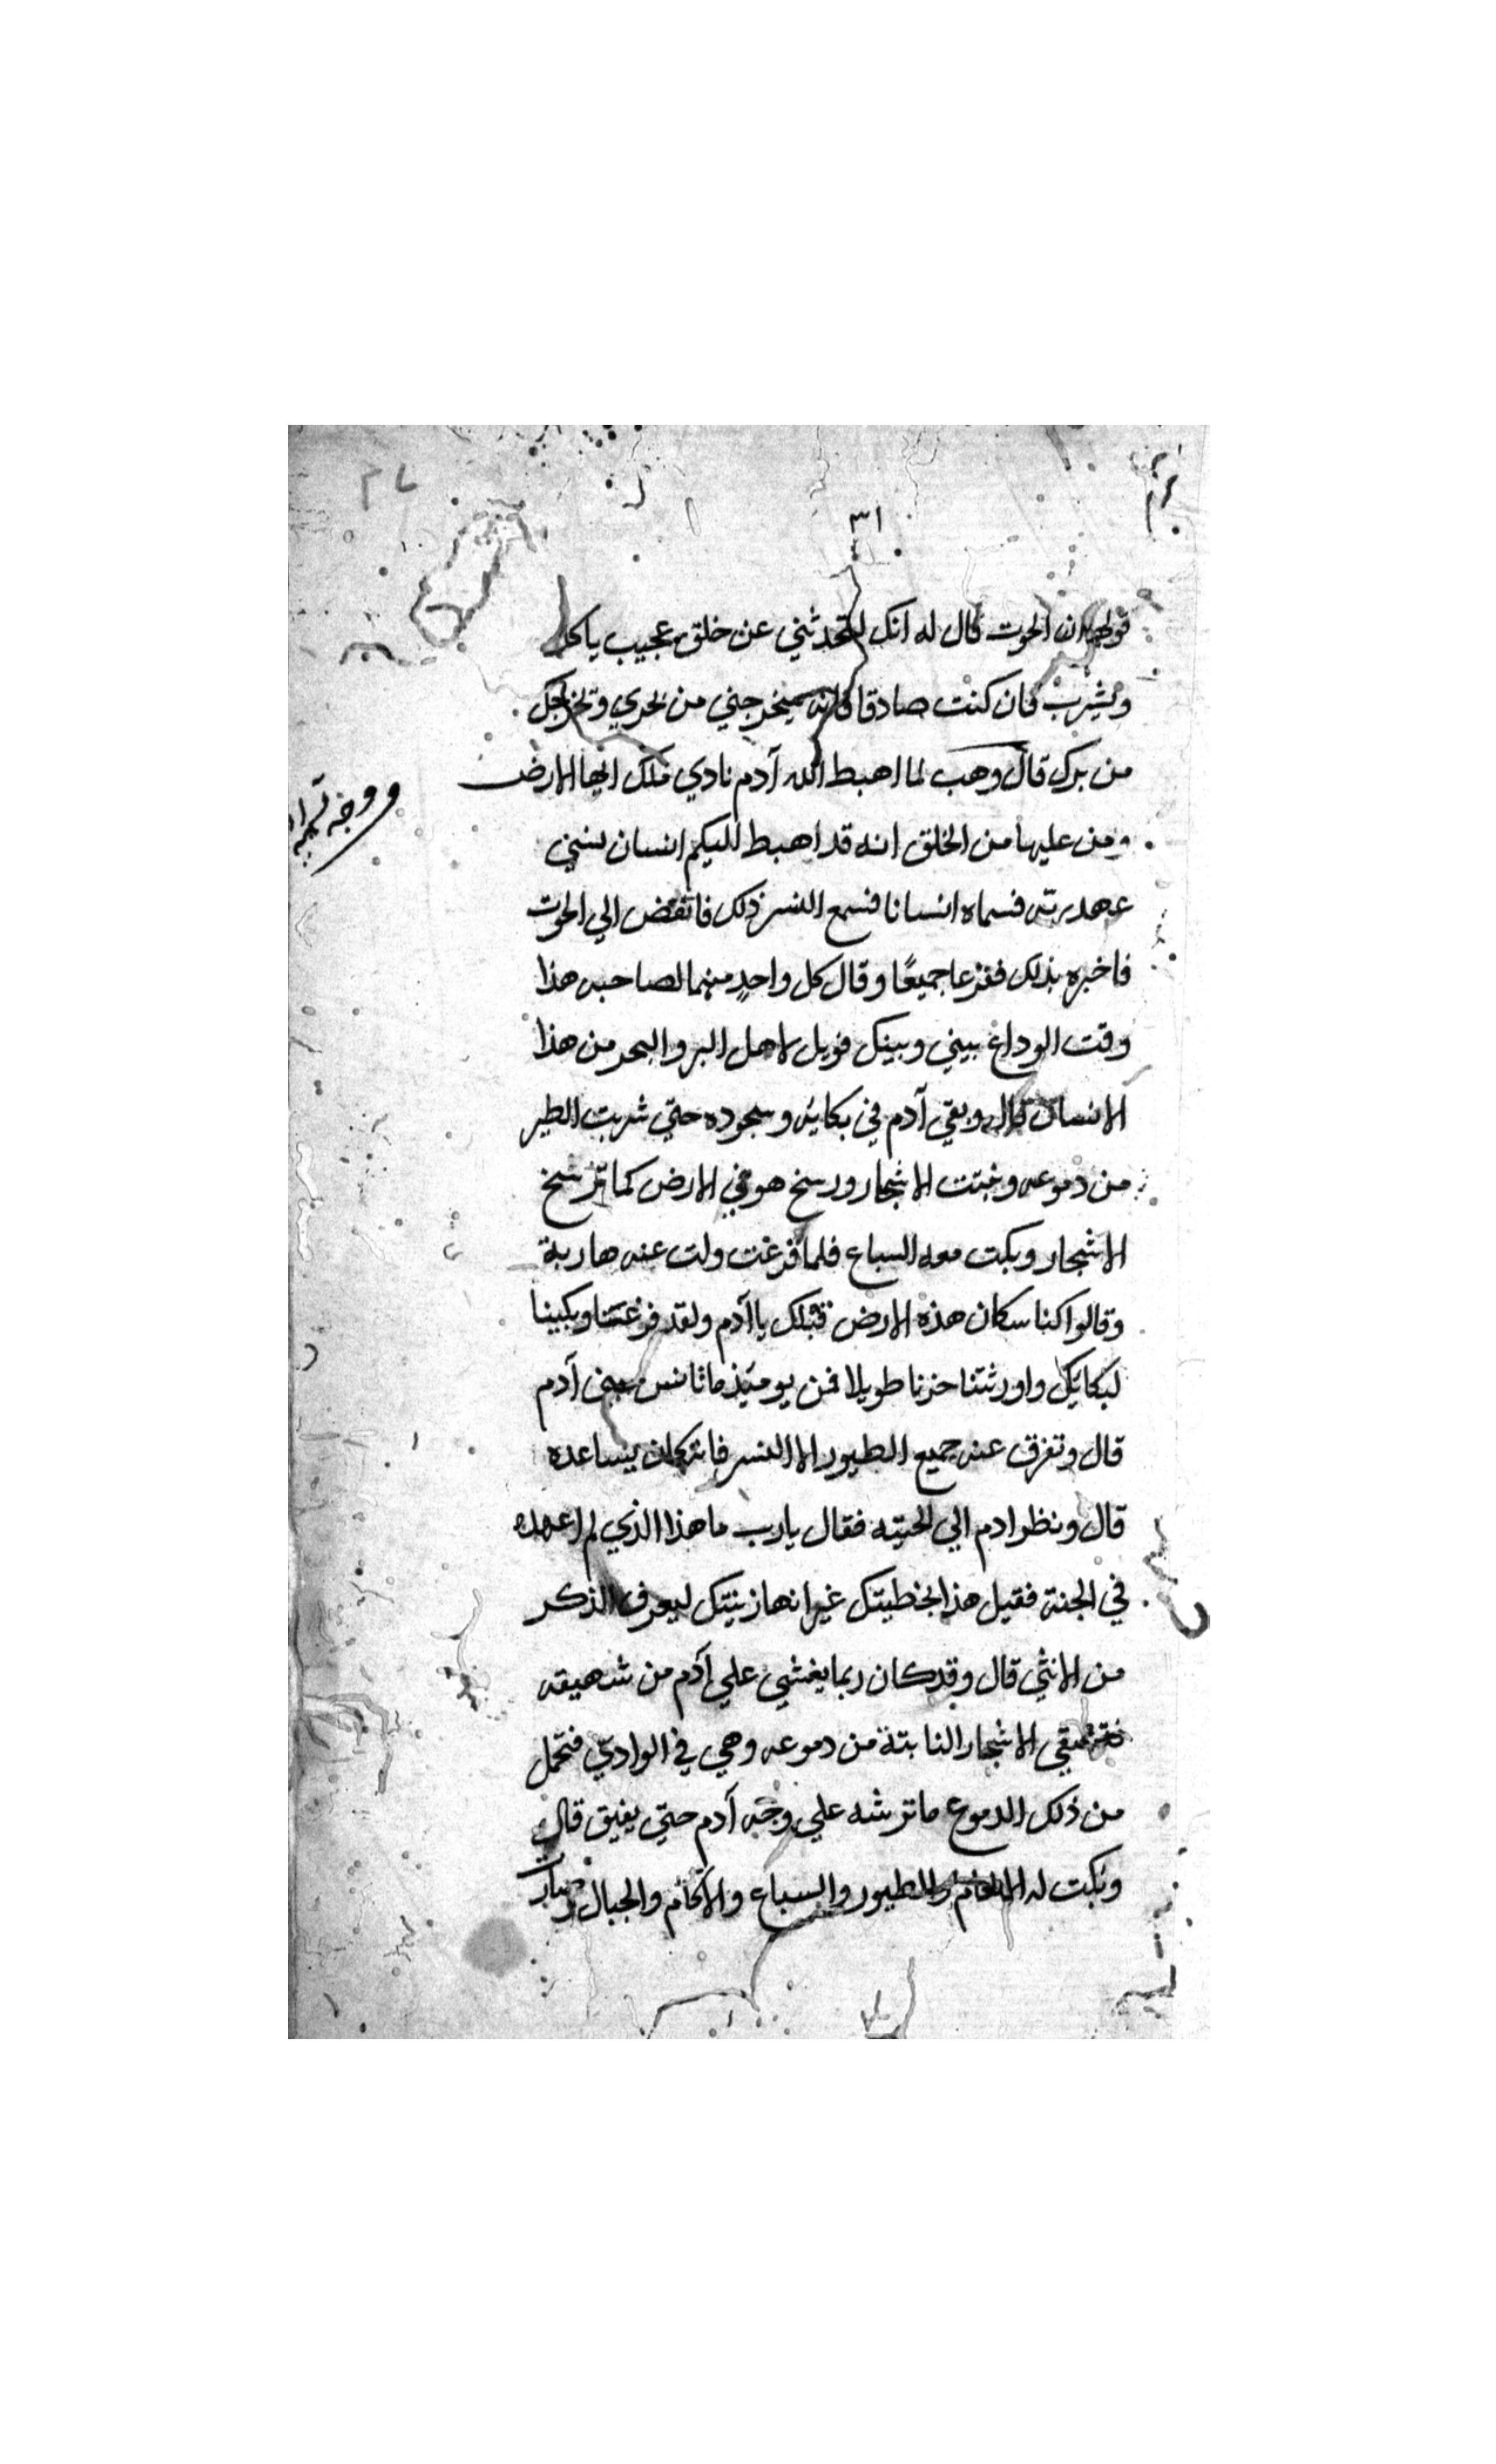 ٣١
ان الحوت قال له انك لتحدثني عن خلق عجيب ياكل
ويشرب فان كنت صادقا فانه سيخرجني من بحري ويخرجك
من برك قال وهب لما اهبط الله آدم نادي ملك ايها الارض
ومن عليها من الخلق انه قد اهبط اليكم انسان نسي
عهد ربه فسماه انسانا فسمع النسر ذلك فانقض الي الحوت
فاخبره بذلك ففزعا جميعًا وقال كل واحدٍ منهما لصاحبه هذا
وقت الوداع بيني وبينك فويل لاهل البر والبحر من هذا
الانسان قال وبقي آدم في بكايه وسجوده حتي شربت الطير
من دموعه ونبتت الاشجار ورسخ هو في الارض كما ترسخ
الاشجار وبكت معه السباع فلما فزعت ولت عنه هاربة
وقالوا كنا سكان هذه الارض قبلك يا آدم ولقد فزعتنا وبكينا
لبكايك واورثتنا حزنا طويلا فمن يوميذ ما تانس ببني آدم
قال وتفرق عنه جميع الطيور الا النسر فانه كان يساعده
قال ونظر ادم الي لحيته فقال يارب ما هذا الذي لم اعهده
في الجنة فقيل هذا بخطيتك غير انها زينتك ليعرف الذكر
من الانثي قال وقد كان ربما يغشي علي آدم من شهيقه
الاشجار النابتة من دموعه وهي في الوادي فتحمل
من ذلك الدموع ما ترشه علي وجه آدم حتي يفيق قال
وبكت له والطيور والسباع والآكام والجبال
ووجه تسمية